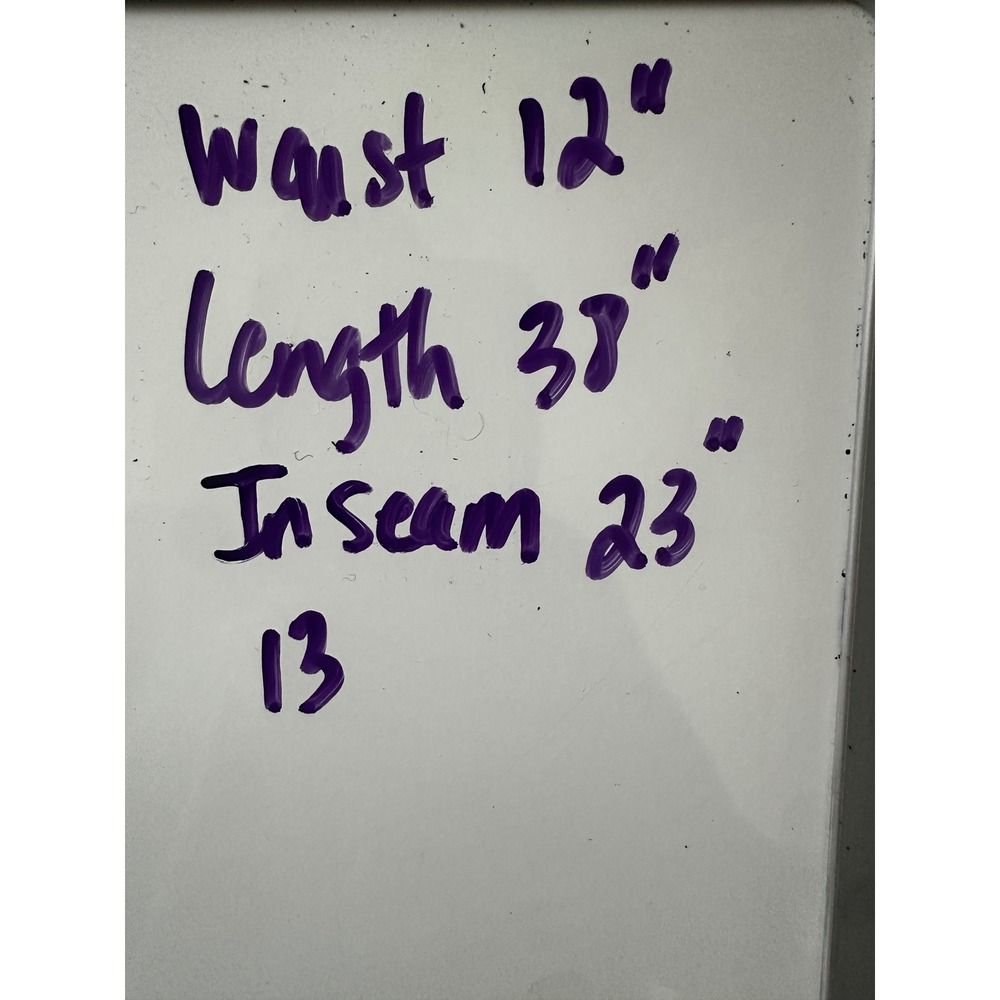 Waist 12"
Length 38"
Inseam 23"
13